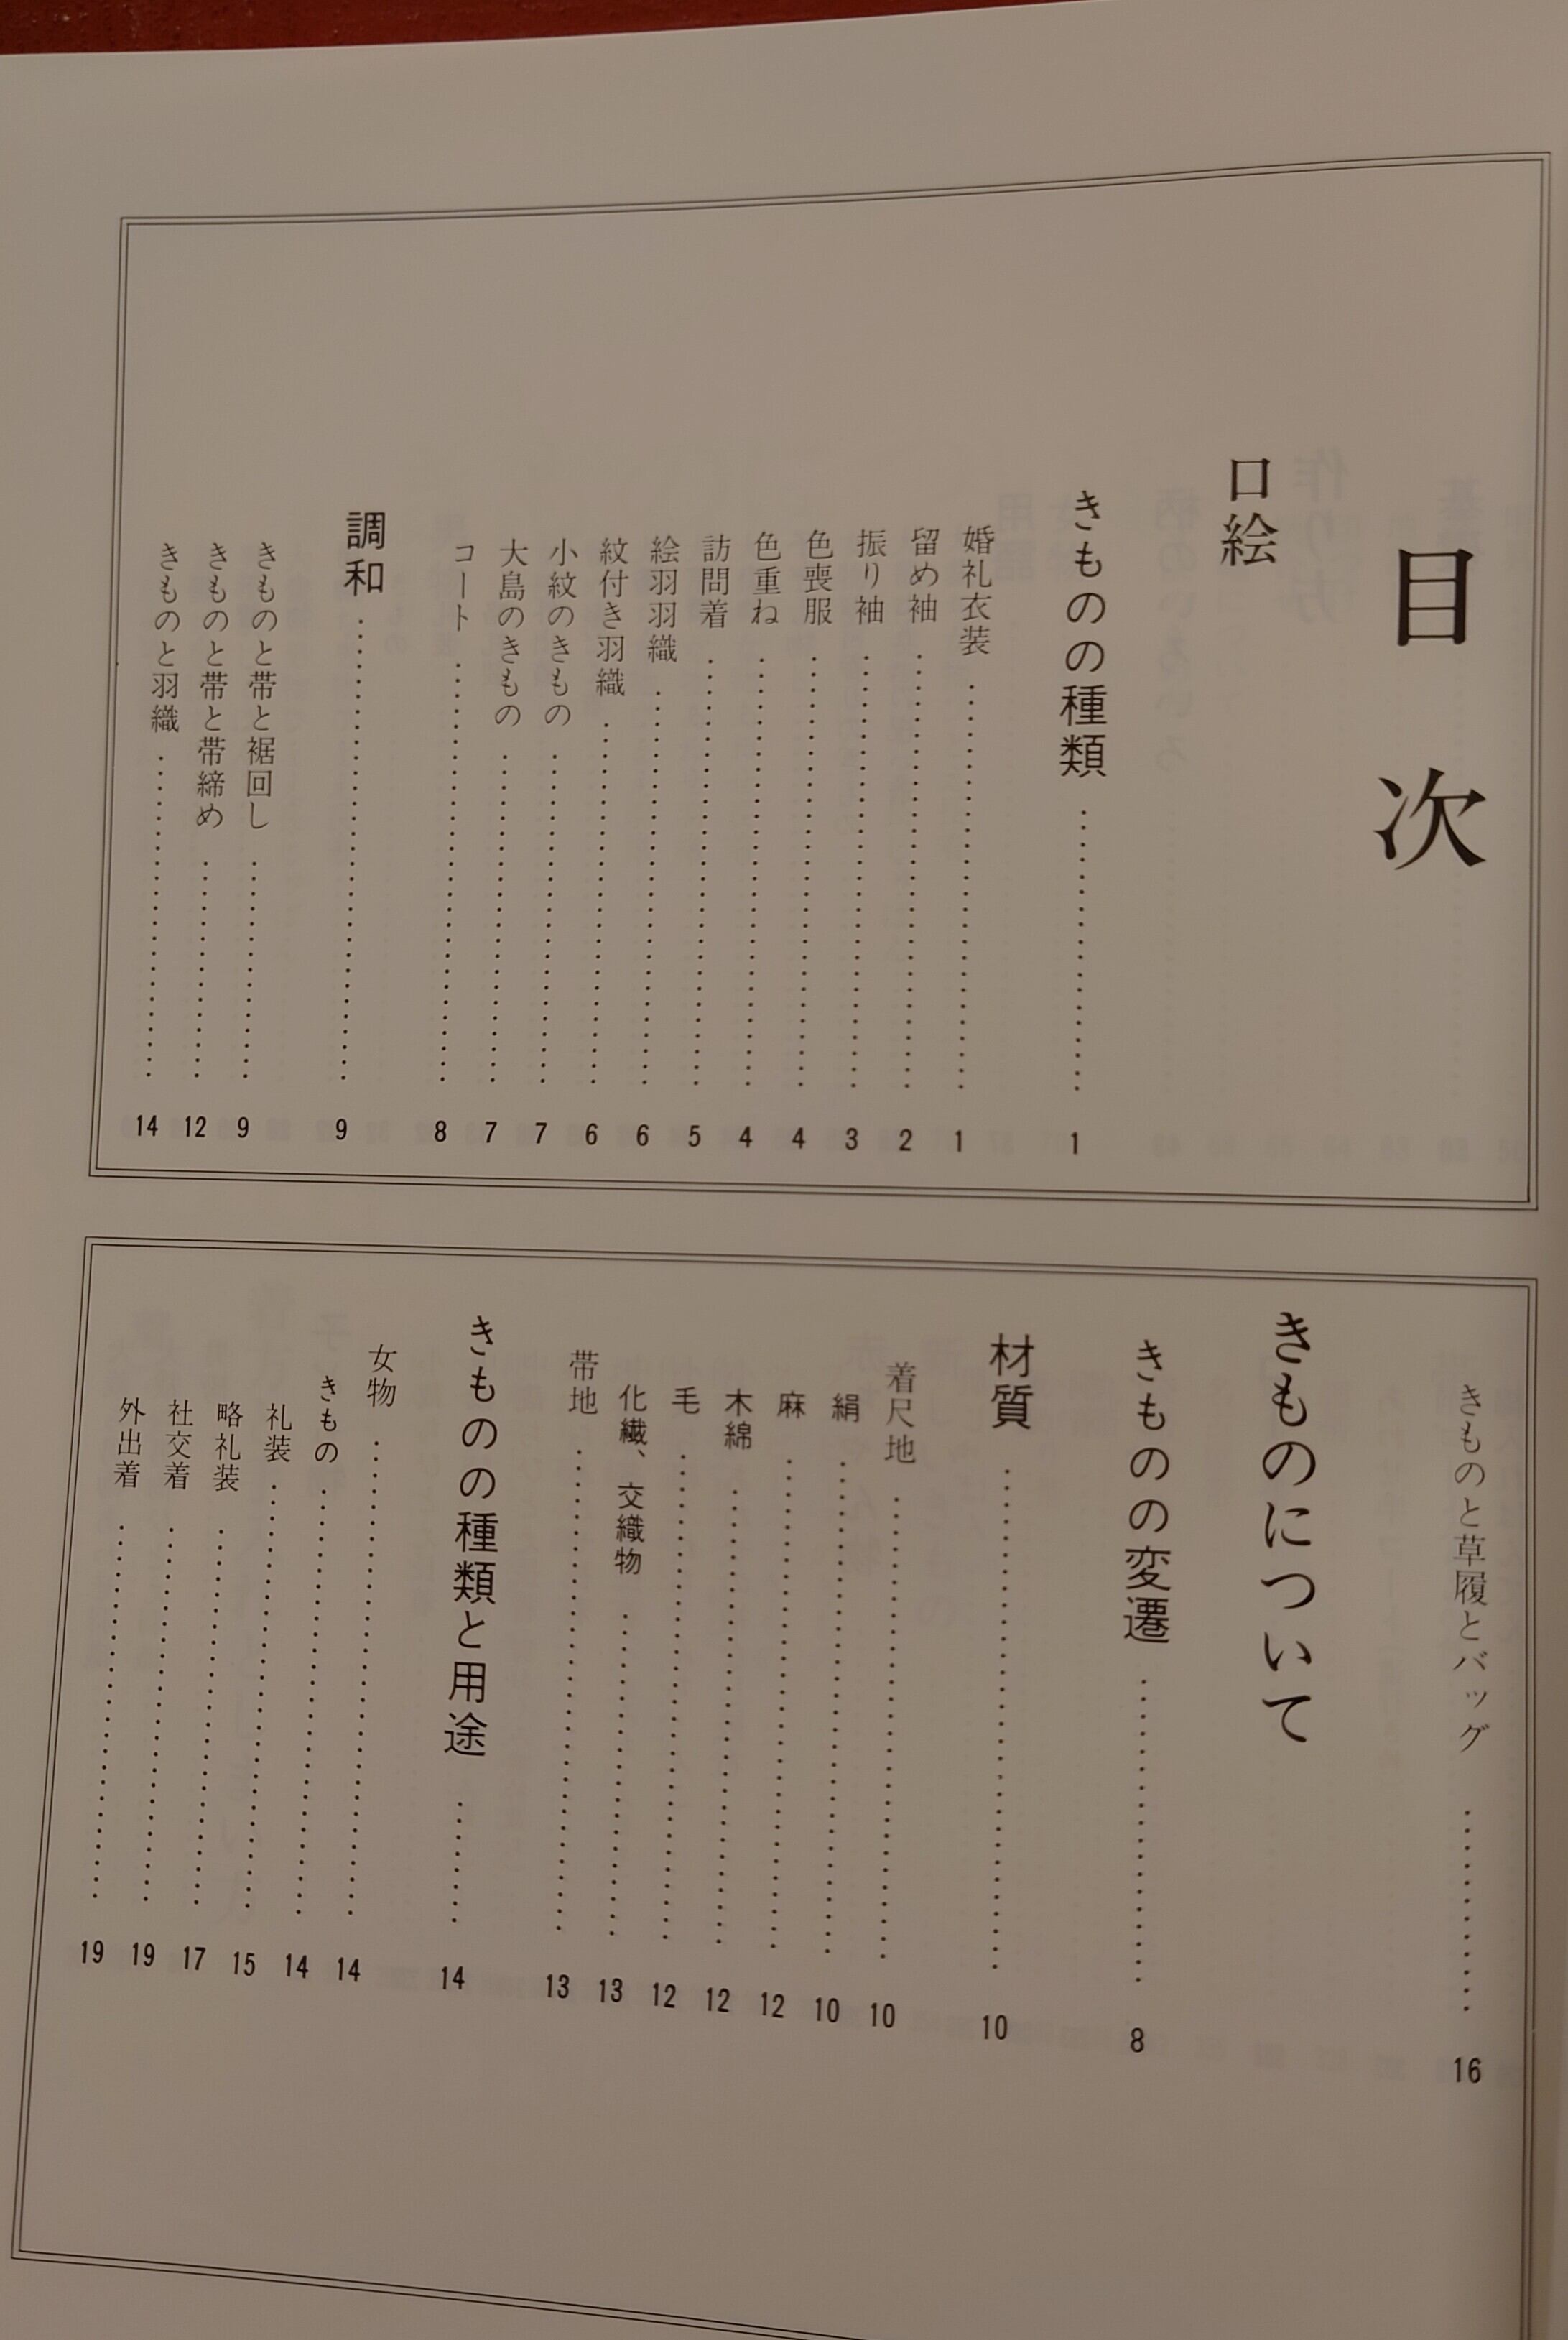 目次
口絵
きものの種類……………1
婚礼衣装……………1
留め袖……………2
振り袖……………3
色喪服……………4
色重ね……………4
訪問着……………5
絵羽羽織……………6
紋付き羽織……………6
小紋のきもの……………7
大島のきもの……………7
コート……………8
調和……………9
きものと帯と裾回し……………9
きものと帯と帯締め……………12
きものと羽織……………14
きものと草履とバッグ……………16
きものについて
きものの変遷……………8
材質……………10
着尺地……………10
絹……………10
麻……………12
木綿……………12
毛……………12
化繊、交織物……………13
帯地……………13
きものの種類と用途……………14
女物……………14
きもの……………14
礼装……………15
略礼装……………17
社交着……………19
外出着……………19